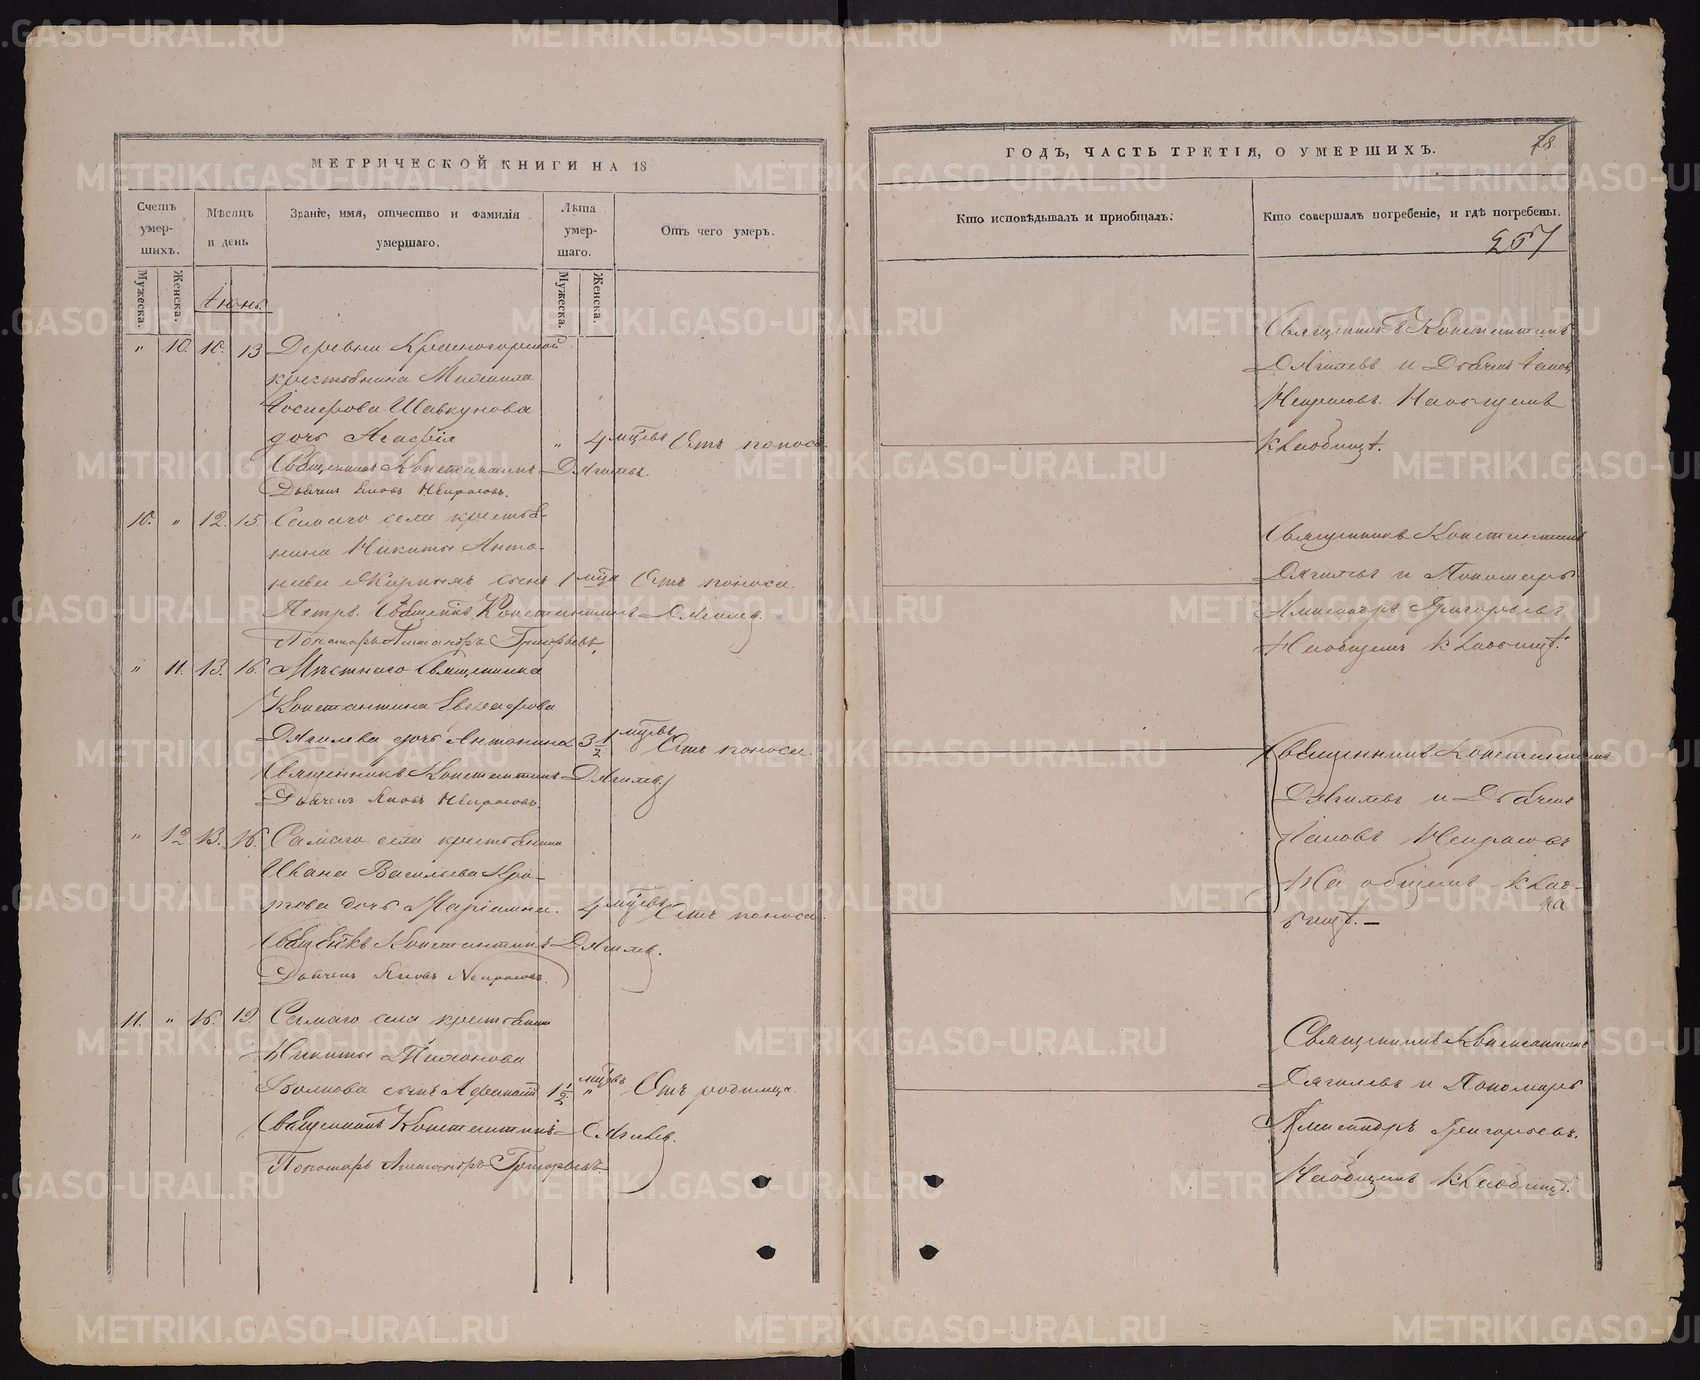 МЕТРИЧЕСКОЙ КНИГИ НА 18
Счетъ умер-шихъ.
Мужеска.
Женска.
Мѣсяцъ и день
Званіе, имя, отчество и фамилія умершаго.
Лѣта умер-шаго.
Мужеска.
Женска.
Отъ чего умеръ.
Іюнь.
" 10. 10. 13 Деревни Красногорской
крестьянина Михаила
Іосифова Шавкунова
дочь Агафія " 4 мѣцъ Отъ поноса.
Священникъ Константинъ Дягилевъ.
Дьячекъ Яковъ Некрасовъ.
10. " 12. 15. Самаго села крестья-
нина Никиты Анто-
сынъ 1 мца Отъ поноса.
Петръ. Священникъ Константинъ Дягилевъ.
Пономарь Александръ Григорьевъ.
" 11. 13. 16. Мѣстнаго Священника
Константина Евграфова
Дягилева дочь Антонина. 3 1/2 мцевъ Отъ поноса.
Священникъ Константинъ Дягилевъ
Дьячекъ Яковъ Некрасовъ.
" 12 13. 16. Самаго села крестьянина
Ивана Васильева
дочь Маріамна. 4 мцевъ Отъ поноса.
Константинъ Дягилевъ.
Дьячекъ Яковъ Некрасовъ.
11. " 16. 19. Самаго села крестьянина
Никиты Тихонова
Волкова сынъ 1 1/2 мцевъ " Отъ родимца.
Священникъ Константинъ Дягилевъ.
Пономарь Александръ Григорьевъ
ГОДЪ, ЧАСТЬ ТРЕТІЯ, О УМЕРШИХЪ.
78.
Кто исповѣдывалъ и приобщалъ.
Кто совершалъ погребеніе, и гдѣ погребены.
267
Священникъ Константинъ
Дягилевъ и Дьячекъ Іаковъ
Некрасовъ. На общемъ
кладбищѣ.
Священникъ Константинъ
Дягилевъ и Пономарь
Александръ Григорьевъ.
На общемъ кладбищѣ.
Священникъ Константинъ
Дягилевъ и Дьячекъ
Іаковъ Некрасовъ
На общемъ клад-
бищѣ.
Священникъ Константинъ
Дягилевъ и Пономарь
Александръ Григорьевъ.
На общемъ кладбищѣ.
METRIKI.GASO-URAL.RU